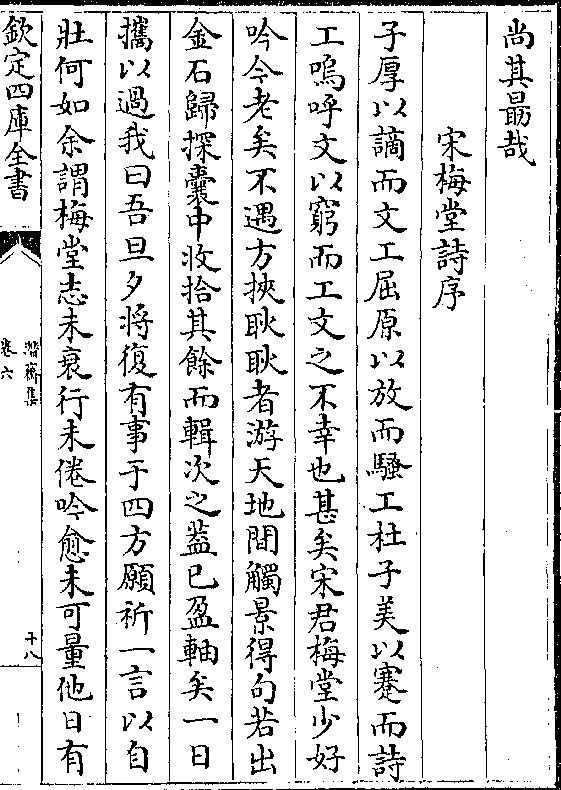 尚其勗哉
宋梅堂詩序
子厚以謫而文工屈原以放而騷工杜子美以蹇而詩
工嗚呼文以窮而工文之不幸也甚矣宋君梅堂少好
吟今老矣不遇方挾耿耿者游天地間觸景得句若出
金石歸探囊中收拾其餘而輯次之葢已盈軸矣一日
攜以過我曰吾旦夕將復有事于四方願祈一言以自
壯何如余謂梅堂志未衰行未倦吟愈未可量他日有
欽定四庫全書
潛齋集
卷六
十八